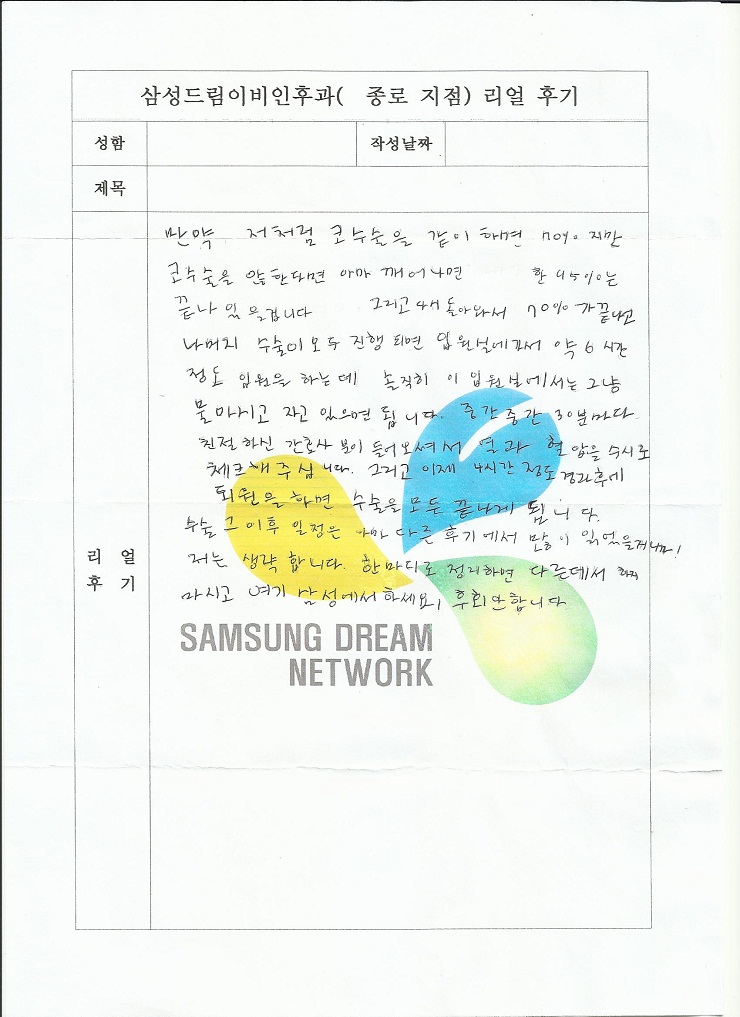 삼성드림이비인후과( 종로 지점) 리얼 후기
성함
작성날짜
제목
만약 저처럼 코수술을 같이 하면 70% 지만
코수술을 않한다면 아마 깨어나면 한 95%는
끝나 있을겁니다 그리고 돌아와서 70%가 끝나고
나머지 수술이 모두 진행 되면 입원실에가서 약 6 시간
정도 입원을 하는데 솔직히 이 입원실에서는 그냥
물마시고 자고 있으면 됩니다. 중간중간 30분마다
친절하신 간호사 분이 들어오셔서 열과 혈압을 수시로
체크해주십니다. 그리고 이제 4시간 정도 경과후에
퇴원을 하면 수술을 모두 끝나게 됩니다.
수술 그 이후 일정은 아마 다른 후기에서 많이 읽었을거니까!
저는 생략 합니다. 한마디로 정리하면 다른데서 하지
마시고 여기 삼성에서하세요, 후회안합니다
리얼
후기
SAMSUNG DREAM
NETWORK